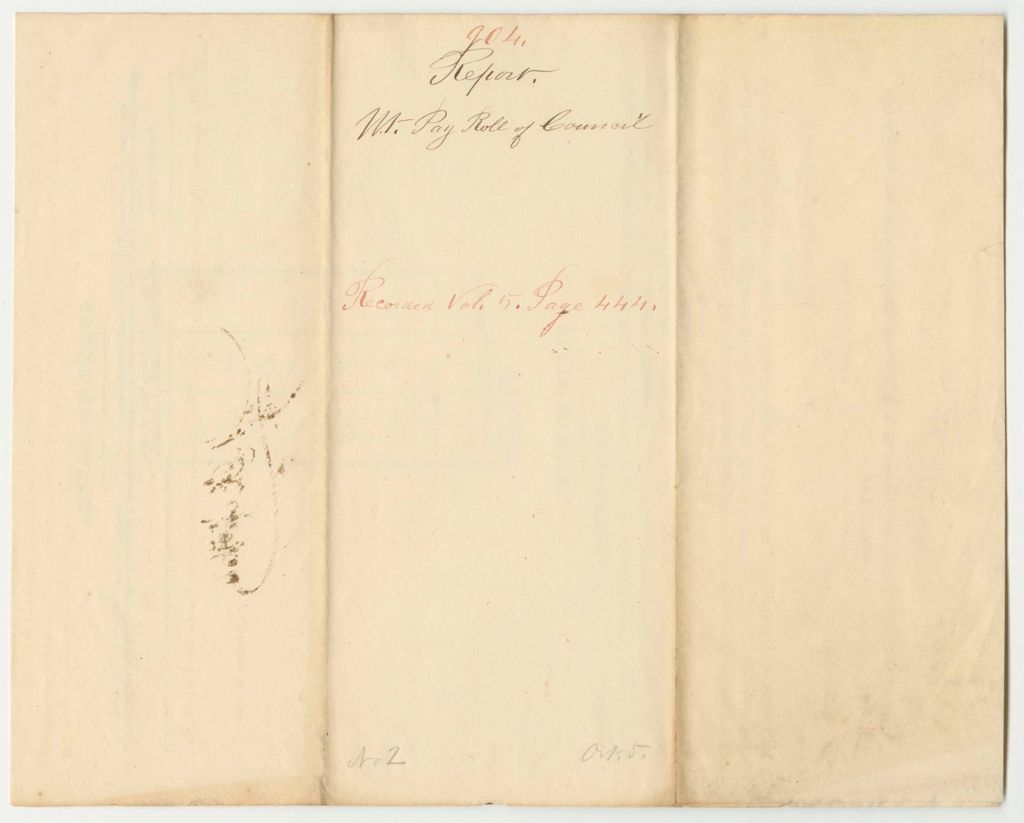 904.
Report.
Wt. Pay Roll of Council
Recorded Vol. 5. Page 444.
No 2
Oct. 5.